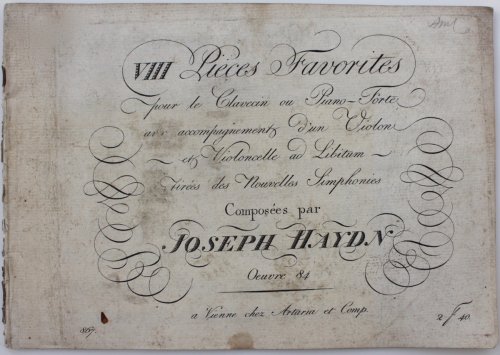 VIII Pièces Favorites
pour le Clavecin ou Piano-Forte
avec accompagnement d'un Violon
et Violoncelle ad Libitum
tirées des Nouvelles Simphonies
Composées par
JOSEPH HAYDN
Oeuvre 84
a Vienne chez Artaria et Comp.
867. 2 f 40.